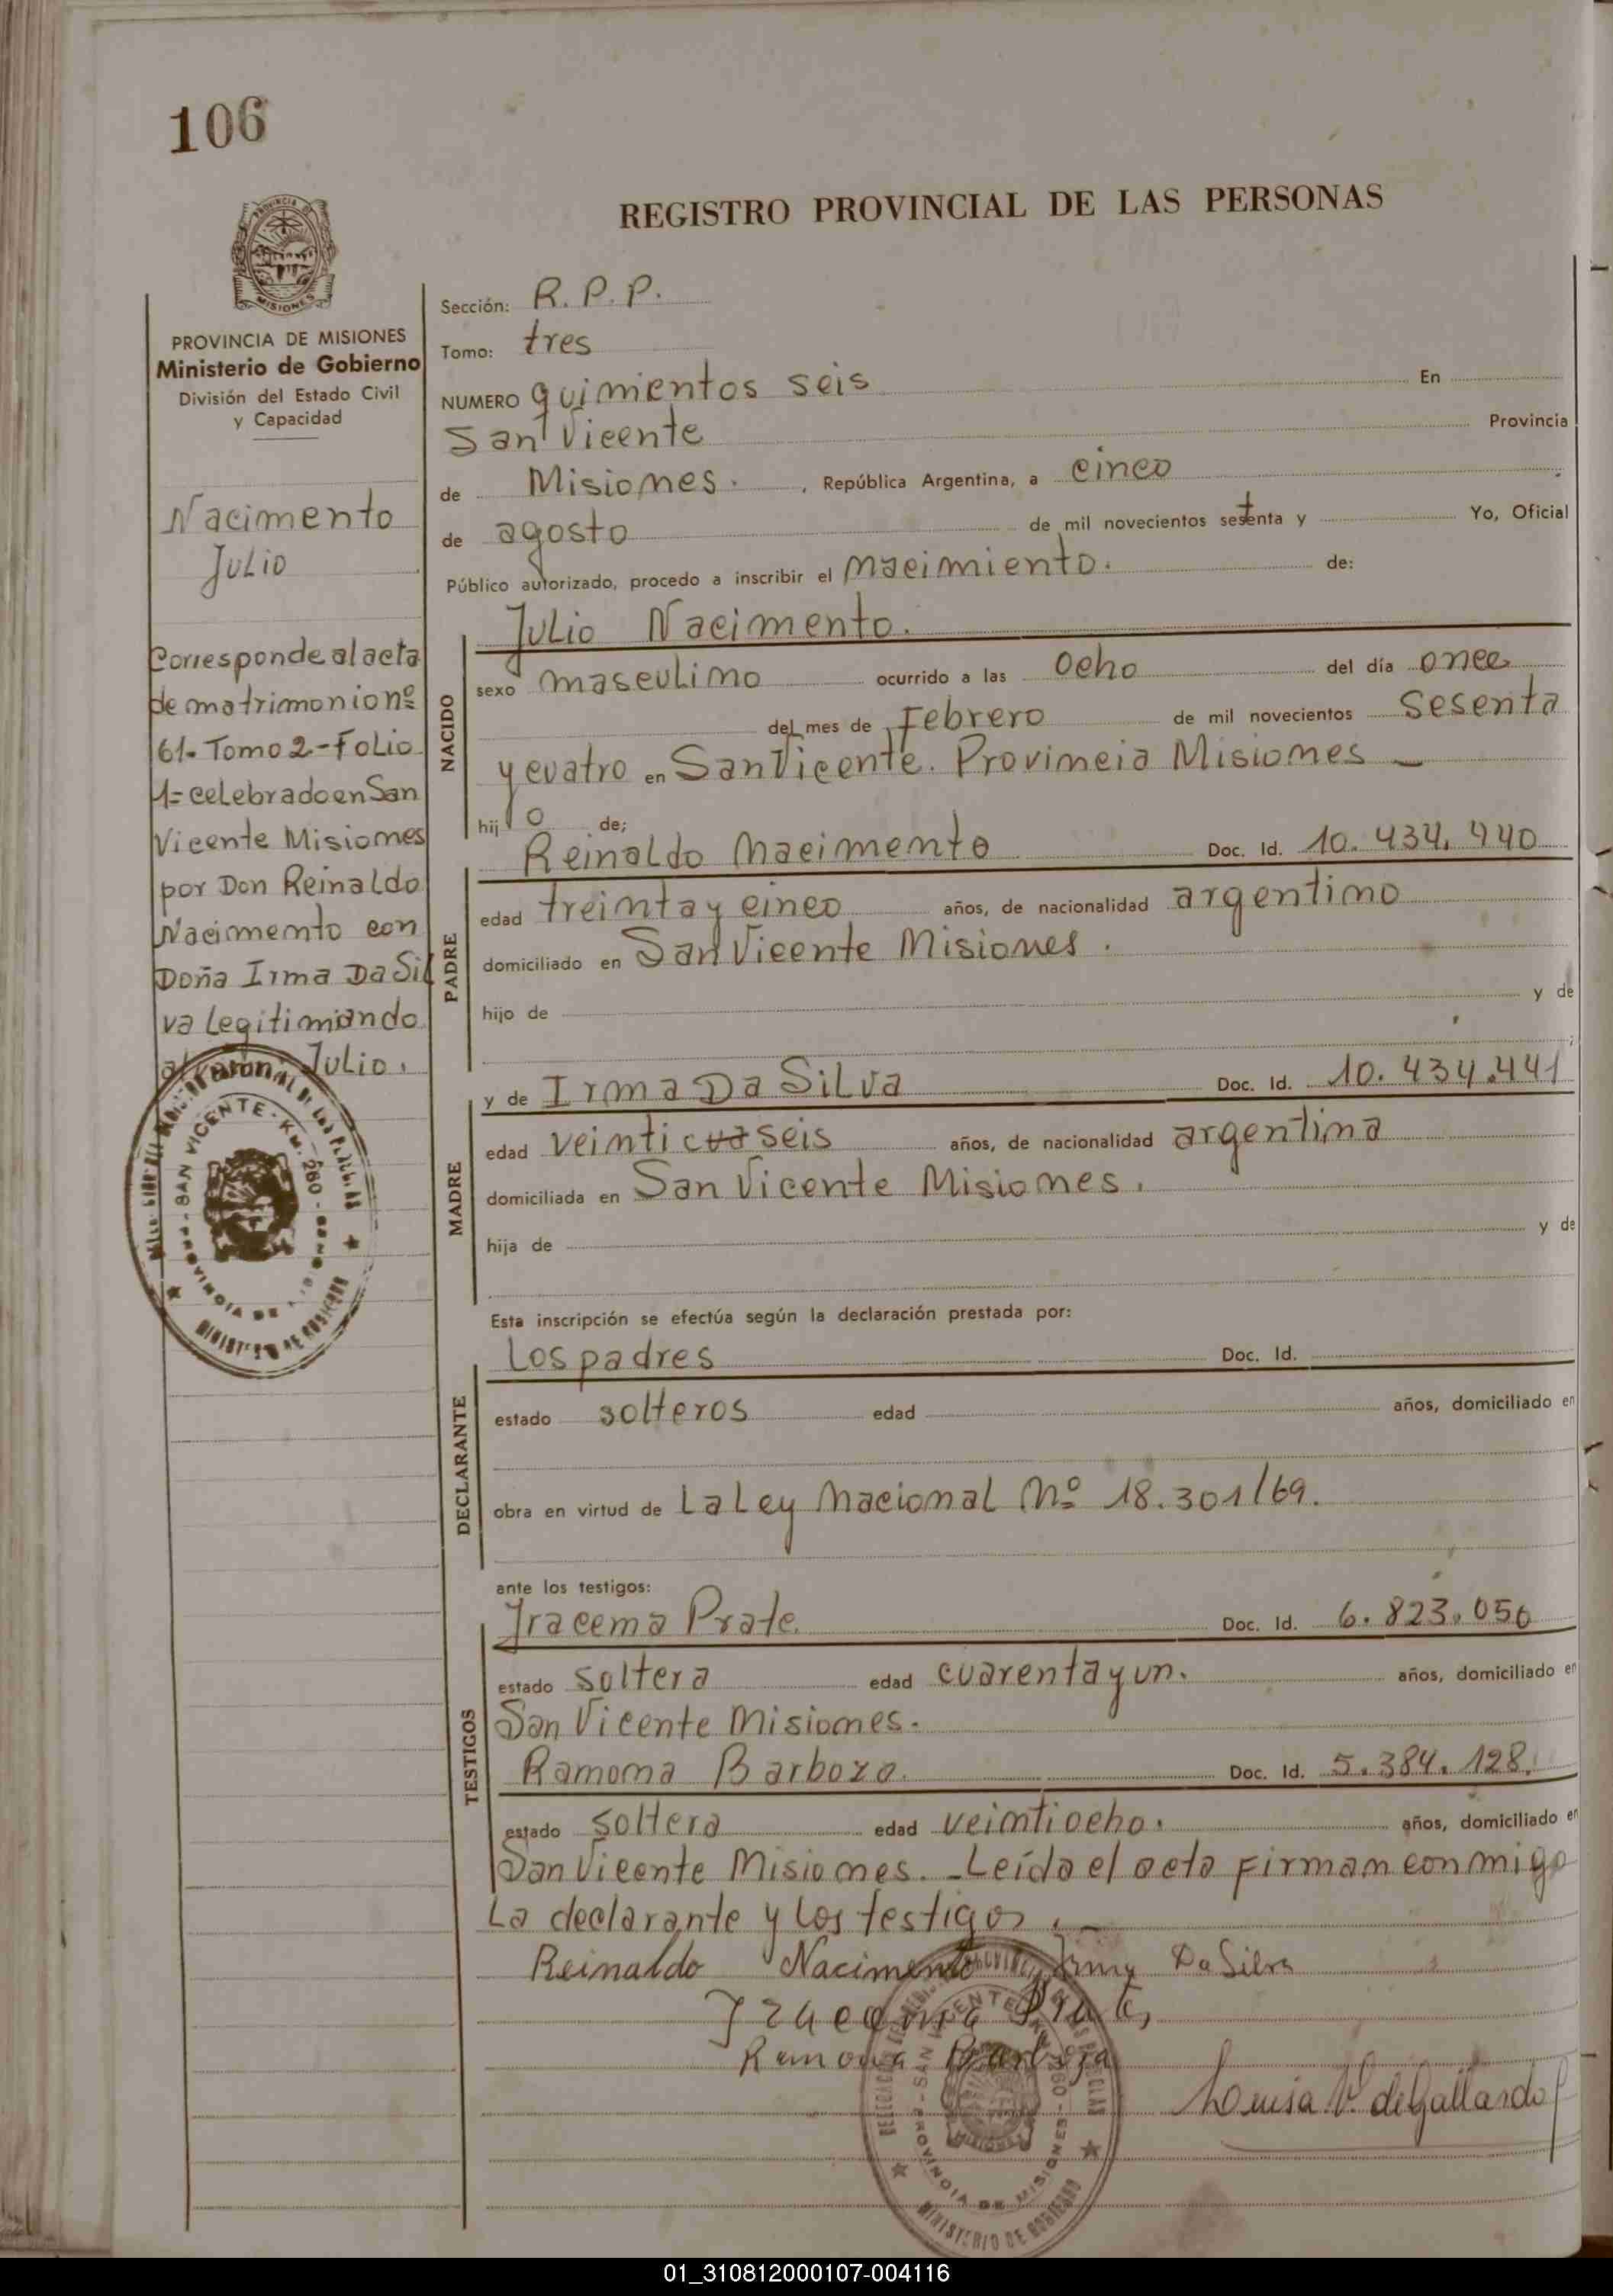 106
REGISTRO PROVINCIAL DE LAS PERSONAS
PROVINCIA DE MISIONES
Ministerio de Gobierno
División del Estado Civil
y Capacidad
Nacimento
Julio
Corresponde al acta
de matrimonio nº
61. Tomo 2-Folio
1= celebrado en San
Vicente Misiones
por Don Reinaldo
Nacimento con
Doña Irma Da Sil
va Legitimando
Julio.
Sección: R. P. P.
Tomo: tres
NUMERO quinientos seis En
San Vicente Provincia
de Misiones. , República Argentina, a cinco
de agosto de mil novecientos setenta y Yo, Oficial
Público autorizado, procedo a inscribir el nacimiento. de:
NACIDO
Julio Nacimento.
sexo masculino ocurrido a las ocho del día once
del mes de Febrero de mil novecientos sesenta
y cuatro en San Vicente. Provincia Misiones
hij o de;
PADRE
Reinaldo Nacimento Doc. Id. 10. 434. 440
edad treinta y cinco años, de nacionalidad argentino
domiciliado en San Vicente Misiones.
hijo de y de
MADRE
y de Irma Da Silva Doc. Id. 10. 434.441
edad veinticuaseis años, de nacionalidad argentina
domiciliada en San Vicente Misiones.
hija de y de
Esta inscripción se efectúa según la declaración prestada por:
DECLARANTE
Los padres Doc. Id.
estado solteros edad años, domiciliado en
obra en virtud de La Ley Nacional Nº 18.301/69.
ante los testigos:
TESTIGOS
Iracema Prate. Doc. Id. 6. 823. 050
estado soltera edad cuarenta y un. años, domiciliado en
San Vicente Misiones.
Ramona Barboza. Doc. Id. 5.384. 128.
estado soltera edad veintiocho. años, domiciliado en
San Vicente Misiones. Leída el acta firman conmigo
La declarante y los testigos.
Reinaldo Nacimento Irma Da Silva
Iracema Prate
Ramona Barboza
Louisa V. de Gallardo
SAN VICENTE - KM. 260
PROVINCIA DE MISIONES
MINISTERIO DE GOBIERNO
01_310812000107-004116